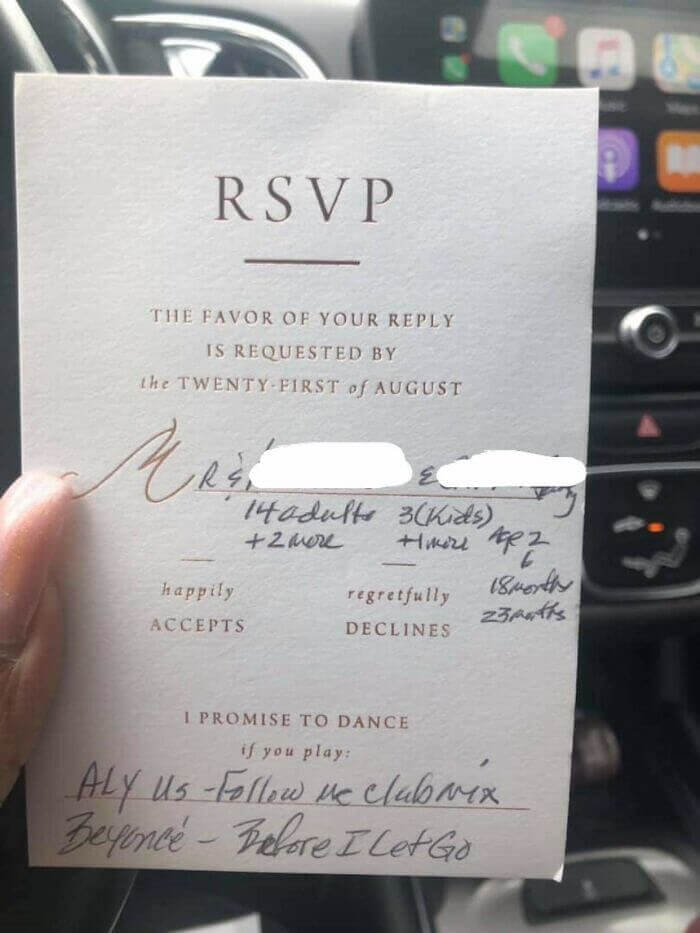 RSVP
THE FAVOR OF YOUR REPLY
IS REQUESTED BY
the TWENTY-FIRST of AUGUST
MR &
&
14 adults 3 (Kids)
+2 more +1 more Age 2
6
18 months
23 months
happily regretfully
ACCEPTS DECLINES
I PROMISE TO DANCE
if you play:
ALY Us - Follow me club mix
Beyoncé - Before I Let Go